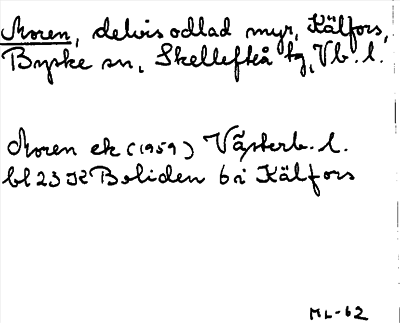 Moren, delvis odlad myr, Kälfors,
Byske sn, Skellefteå tg, Vb. l.
Moren ek (1959) Västerb. l.
bl 23 K Boliden 6 i Kälfors
ML-62